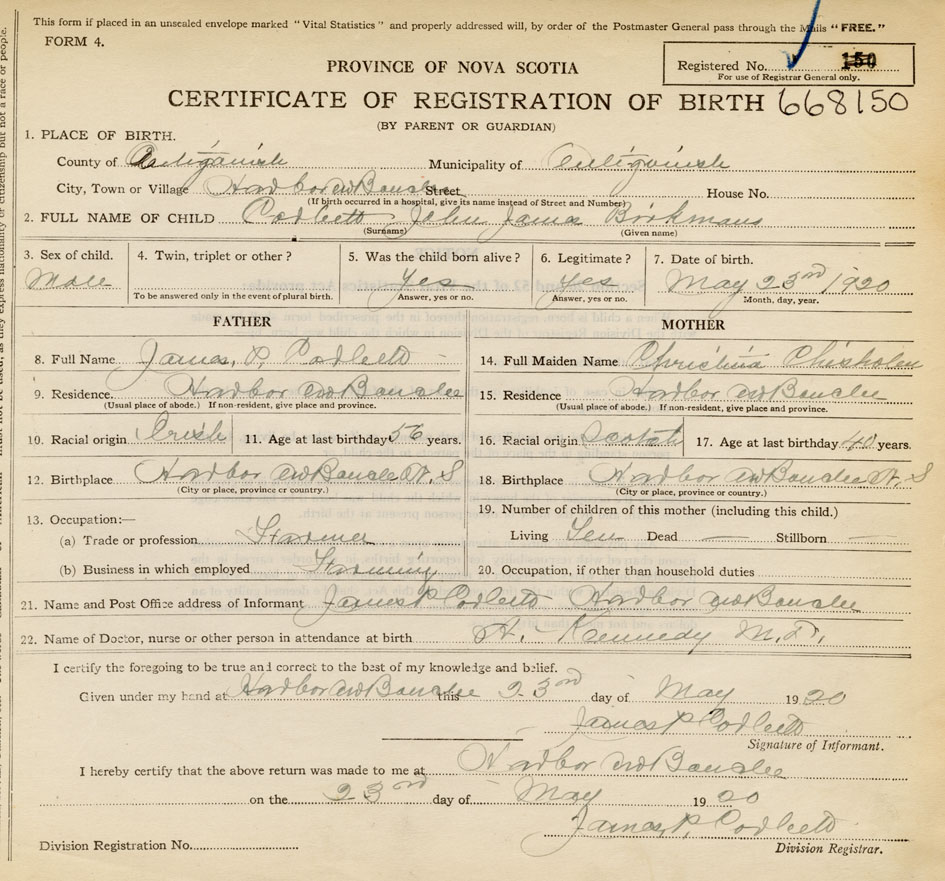 This form if placed in an unsealed envelope marked "Vital Statistics" and properly addressed will, by order of the Postmaster General pass through the Mails "FREE."
FORM 4.
Registered No. 150
For use of Registrar General only.
PROVINCE OF NOVA SCOTIA
CERTIFICATE OF REGISTRATION OF BIRTH 668150
(BY PARENT OR GUARDIAN)
1. PLACE OF BIRTH.
County of Antigonish Municipality of Antigonish
City, Town or Village Harbor au Bouche Street House No.
(If birth occurred in a hospital, give its name instead of Street and Number)
2. FULL NAME OF CHILD Corbett John James
(Surname) (Given name)
3. Sex of child. 4. Twin, triplet or other? 5. Was the child born alive? 6. Legitimate? 7. Date of birth.
Male Yes Yes May 23rd 1920
To be answered only in the event of plural birth. Answer, yes or no. Answer, yes or no. Month, day, year.
FATHER MOTHER
8. Full Name James P. Corbett 14. Full Maiden Name Christina Chisholm
9. Residence. Harbor au Bouche 15. Residence Harbor au Bouche
(Usual place of abode.) If non-resident, give place and province. (Usual place of abode.) If non-resident, give place and province.
10. Racial origin Irish 11. Age at last birthday 56 years. 16. Racial origin Scotch 17. Age at last birthday 40 years.
12. Birthplace Harbor au Bouche N. S 18. Birthplace Harbor au Bouche N. S
(City or place, province or country.) (City or place, province or country.)
13. Occupation:— 19. Number of children of this mother (including this child.)
(a) Trade or profession Farmer Living Ten Dead — Stillborn —
(b) Business in which employed Farming 20. Occupation, if other than household duties
21. Name and Post Office address of Informant James P Corbett Harbor au Bouche
22. Name of Doctor, nurse or other person in attendance at birth. Kennedy M.D.
I certify the foregoing to be true and correct to the best of my knowledge and belief.
Given under my hand at Harbor au Bouche this 23rd day of May 1920
James P Corbett
Signature of Informant.
I hereby certify that the above return was made to me at Harbor au Bouche
on the 23rd day of May 1920
James P. Corbett
Division Registration No. Division Registrar.